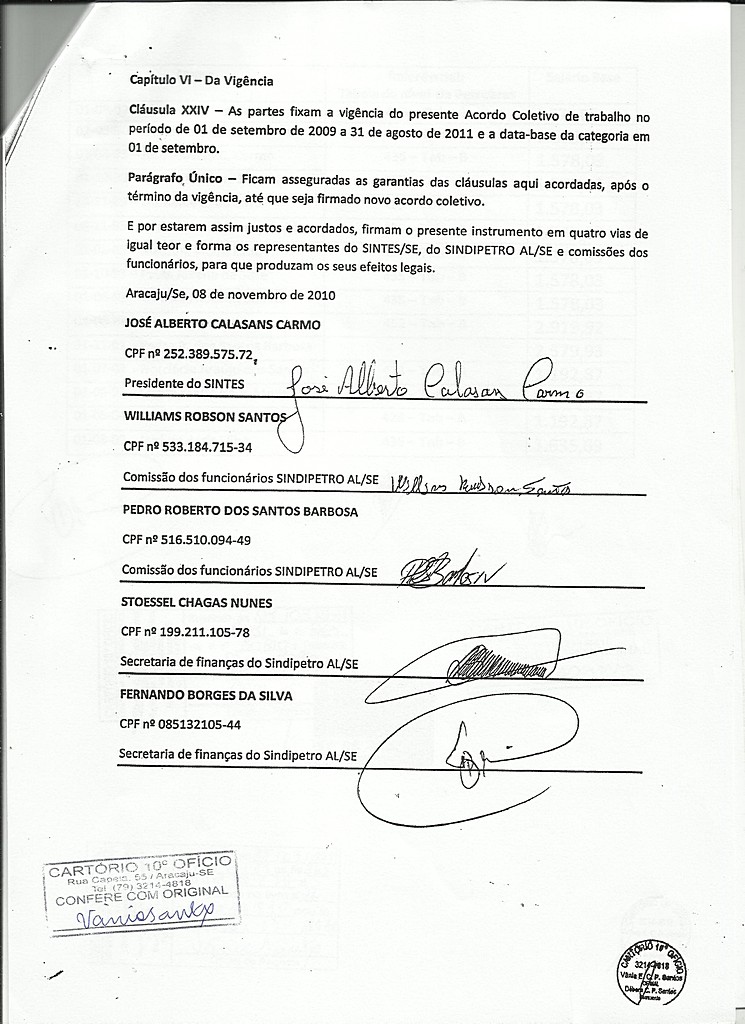 Capítulo VI – Da Vigência
Cláusula XXIV – As partes fixam a vigência do presente Acordo Coletivo de trabalho no
período de 01 de setembro de 2009 a 31 de agosto de 2011 e a data-base da categoria em
01 de setembro.
Parágrafo Único – Ficam asseguradas as garantias das cláusulas aqui acordadas, após o
término da vigência, até que seja firmado novo acordo coletivo.
E por estarem assim justos e acordados, firmam o presente instrumento em quatro vias de
igual teor e forma os representantes do SINTES/SE, do SINDIPETRO AL/SE e comissões dos
funcionários, para que produzam os seus efeitos legais.
Aracaju/Se, 08 de novembro de 2010
JOSÉ ALBERTO CALASANS CARMO
CPF nº 252.389.575.72,
Presidente do SINTES José Alberto Calasan Carmo
WILLIAMS ROBSON SANTOS
CPF nº 533.184.715-34
Comissão dos funcionários SINDIPETRO AL/SE Williams Robson Santos
PEDRO ROBERTO DOS SANTOS BARBOSA
CPF nº 516.510.094-49
Comissão dos funcionários SINDIPETRO AL/SE
STOESSEL CHAGAS NUNES
CPF nº 199.211.105-78
Secretaria de finanças do Sindipetro AL/SE
FERNANDO BORGES DA SILVA
CPF nº 085132105-44
Secretaria de finanças do Sindipetro AL/SE
CARTÓRIO 10º OFÍCIO
Rua Capela, 55 / Aracaju-SE
Tel. (79) 3214-4818
CONFERE COM ORIGINAL
CARTÓRIO 10º OFÍCIO
Vânia E. C. P. Santos
P. Santos